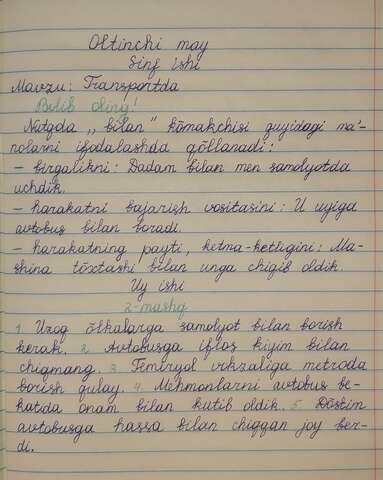 Oltinchi may
Sinf ishi
Mavzu: Transportda
Bilib oling!
Nutqda „bilan" kōmakchisi quyidagi ma'-
nolarni ifodalashda qōllanadi:
– birgalikni: Dadam bilan men samolyotda
uchdik.
– harakatni bajarish vositasini: U uyiga
avtobus bilan boradi.
– harakatning payti, ketma-ketligini: Ma-
shina tōxtashi bilan unga chiqib oldik.
Uy ishi
2-mashq
1. Uzoq ōlkalarga samolyot bilan borish
kerak. 2. Avtobusga iflos kiyim bilan
chiqmang. 3. Temiryōl vokzaliga metroda
borish qulay. 4. Mehmonlarni avtobus be-
katida onam bilan kutib oldik. 5. Dōstim
avtobusga hassa bilan chiqqan joy ber-
di.